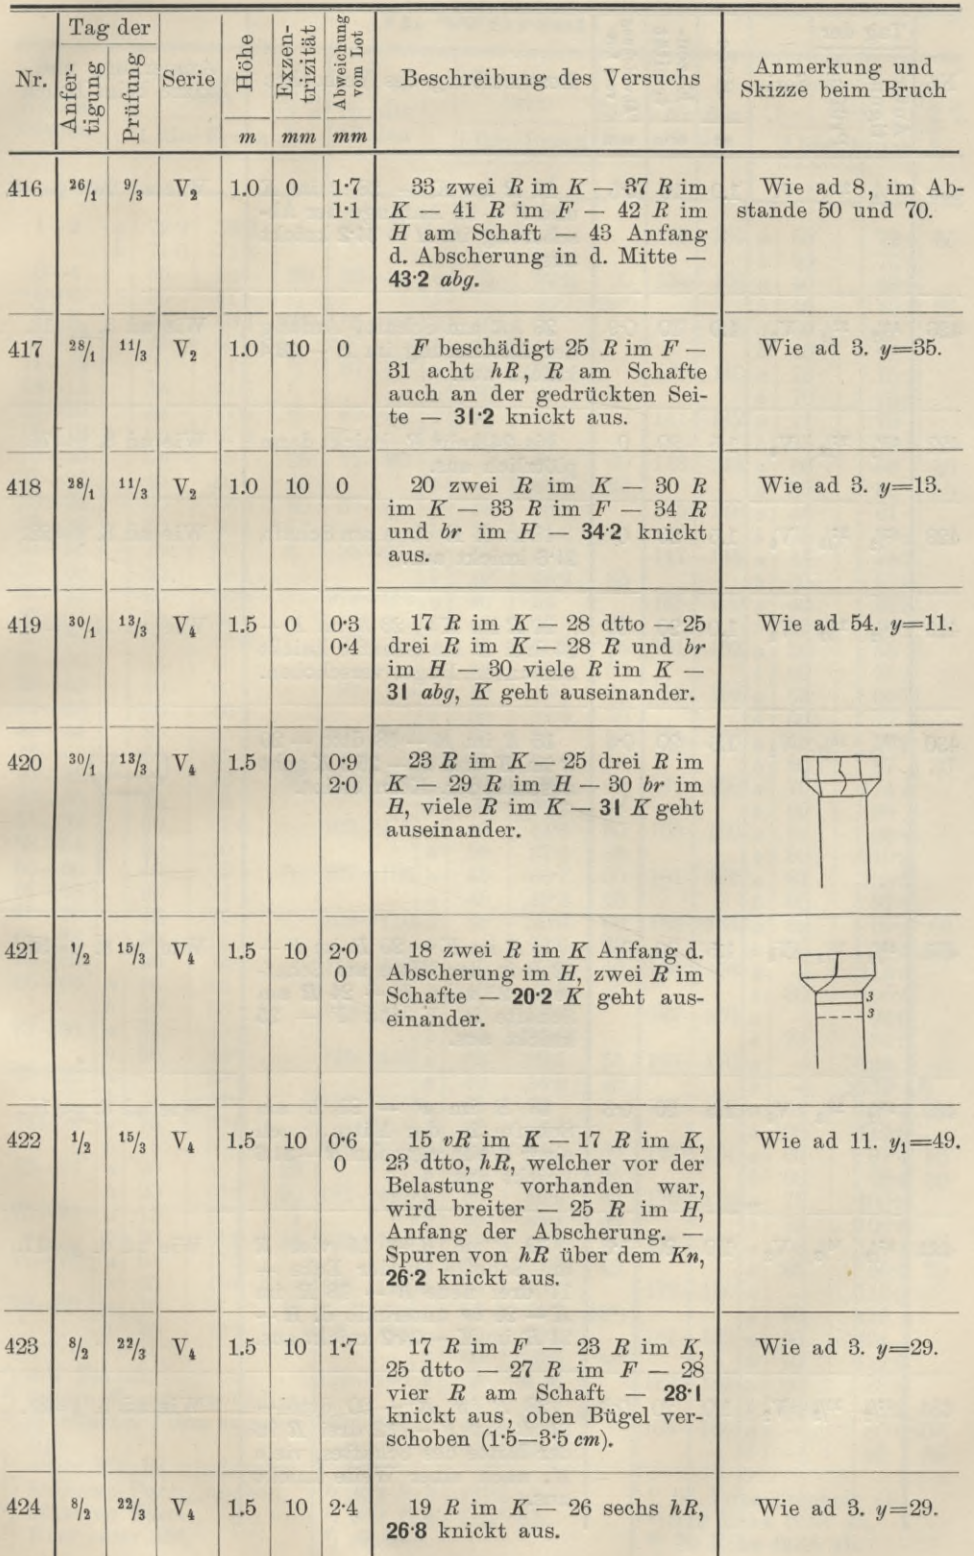 Nr.
Tag der
Anfer-
tigung
Prüfung
Serie
Höhe
Exzen-
trizität
Abweichung
vom Lot
Beschreibung des Versuchs
Anmerkung und
Skizze beim Bruch
m
mm
mm
416 26/1 9/3 V2 1.0 0 1·7
1·1
33 zwei R im K — 37 R im
K — 41 R im F — 42 R im
H am Schaft — 43 Anfang
d. Abscherung in d. Mitte —
43·2 abg.
Wie ad 8, im Ab-
stande 50 und 70.
417 28/1 11/3 V2 1.0 10 0
F beschädigt 25 R im F —
31 acht hR, R am Schafte
auch an der gedrückten Sei-
te — 31·2 knickt aus.
Wie ad 3. y=35.
418 28/1 11/3 V2 1.0 10 0
20 zwei R im K — 30 R
im K — 33 R im F — 34 R
und br im H — 34·2 knickt
aus.
Wie ad 3. y=13.
419 30/1 13/3 V4 1.5 0 0·3
0·4
17 R im K — 28 dtto — 25
drei R im K — 28 R und br
im H — 30 viele R im K —
31 abg, K geht auseinander.
Wie ad 54. y=11.
420 30/1 13/3 V4 1.5 0 0·9
2·0
23 R im K — 25 drei R im
K — 29 R im H — 30 br im
H, viele R im K — 31 K geht
auseinander.
421 1/2 15/3 V4 1.5 10 2·0
0
18 zwei R im K Anfang d.
Abscherung im H, zwei R im
Schafte — 20·2 K geht aus-
einander.
3
3
422 1/2 15/3 V4 1.5 10 0·6
0
15 vR im K — 17 R im K,
23 dtto, hR, welcher vor der
Belastung vorhanden war,
wird breiter — 25 R im H,
Anfang der Abscherung. —
Spuren von hR über dem Kn,
26·2 knickt aus.
Wie ad 11. y1=49.
423 8/2 22/3 V4 1.5 10 1·7
17 R im F — 23 R im K,
25 dtto — 27 R im F — 28
vier R am Schaft — 28·1
knickt aus, oben Bügel ver-
schoben (1·5—3·5 cm).
Wie ad 3. y=29.
424 8/2 22/3 V4 1.5 10 2·4
19 R im K — 26 sechs hR,
26·8 knickt aus.
Wie ad 3. y=29.